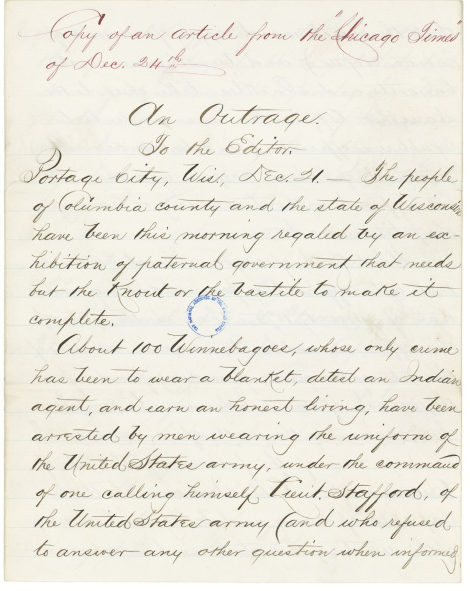 Copy of an article from the "Chicago Times"
of Dec. 24th
An Outrage.
To the Editor.
Portage City, Wis, Dec. 21. — The people
of Columbia county and the state of Wisconsin
have been this morning regaled by an ex-
hibition of paternal government that needs
but the Knout or the bastile to make it
complete.
About 100 Winnebagoes, whose only crime
has been to wear a blanket, detest an Indian
agent, and earn an honest living, have been
arrested by men wearing the uniform of
the United States army, under the command
of one calling himself Lieut. Stafford, of
the United States army (and who refused
to answer any other question when informed